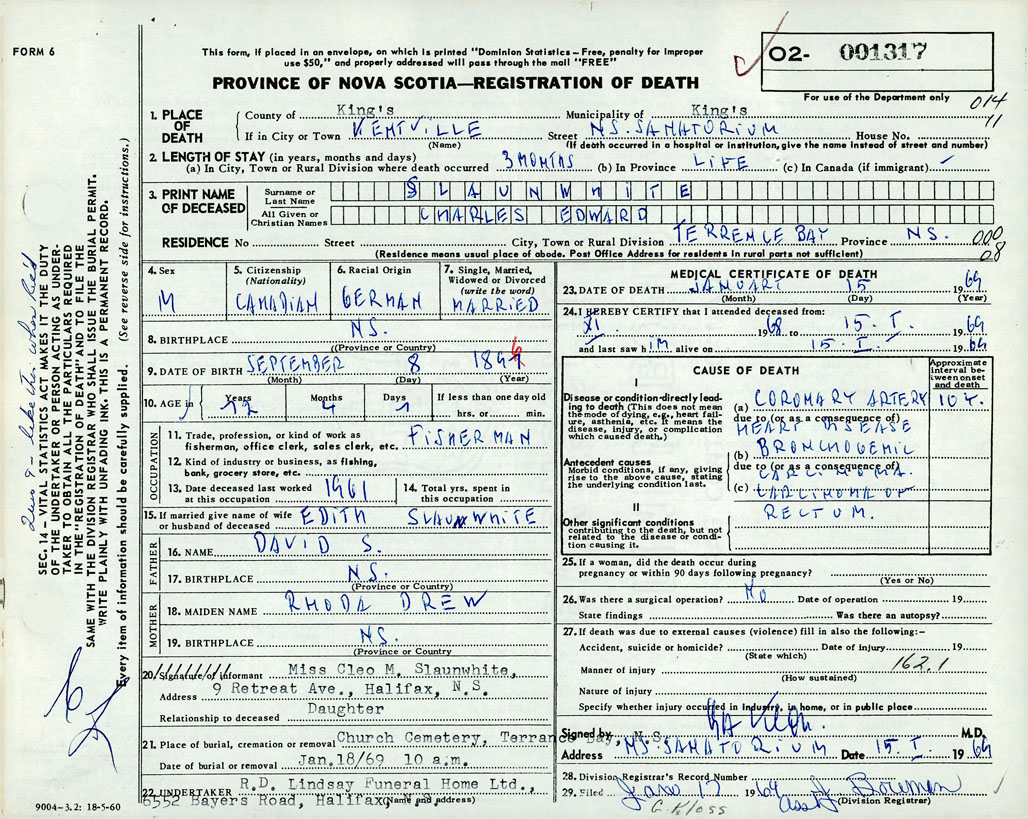 FORM 6
This form, if placed in an envelope, on which is printed "Dominion Statistics – Free, penalty for improper
use $50," and properly addressed will pass through the mail "FREE"
PROVINCE OF NOVA SCOTIA—REGISTRATION OF DEATH
02- 001317
For use of the Department only
014
11
1. PLACE OF DEATH
County of King's Municipality of King's
If in City or Town KENTVILLE Street N.S. SANATORIUM House No.
(Name) (If death occurred in a hospital or institution, give the name instead of street and number)
2. LENGTH OF STAY (in years, months and days)
(a) In City, Town or Rural Division where death occurred 3 MONTHS (b) In Province LIFE (c) In Canada (if immigrant)
3. PRINT NAME OF DECEASED
Surname or Last Name SLAUNWHITE
All Given or Christian Names CHARLES EDWARD
RESIDENCE No Street City, Town or Rural Division TERRENCE BAY Province N.S. 000
08
(Residence means usual place of abode. Post Office Address for residents in rural parts not sufficient)
4. Sex M
5. Citizenship (Nationality) CANADIAN
6. Racial Origin GERMAN
7. Single, Married, Widowed or Divorced (write the word) MARRIED
8. BIRTHPLACE N.S.
(Province or Country)
9. DATE OF BIRTH SEPTEMBER 8 1896
(Month) (Day) (Year)
10. AGE Years 72 Months 4 Days 7 If less than one day old
hrs. or min.
OCCUPATION
11. Trade, profession, or kind of work as fisherman, office clerk, sales clerk, etc. FISHERMAN
12. Kind of industry or business, as fishing, bank, grocery store, etc.
13. Date deceased last worked at this occupation 1961
14. Total yrs. spent in this occupation
15. If married give name of wife or husband of deceased EDITH SLAUNWHITE
FATHER
16. NAME DAVID S.
17. BIRTHPLACE N.S.
(Province or Country)
MOTHER
18. MAIDEN NAME RHODA DREW
19. BIRTHPLACE N.S.
(Province or Country
20. Signature of informant Miss Cleo M. Slaunwhite,
Address 9 Retreat Ave., Halifax, N.S.
Relationship to deceased Daughter
21. Place of burial, cremation or removal Church Cemetery, Terrance Bay, N.S.
Date of burial or removal Jan.18/69 10 a.m.
22. UNDERTAKER R.D. Lindsay Funeral Home Ltd.,
6552 Bayers Road, Halifax, N.S.
(Name and address)
9004-3.2: 18-5-60
MEDICAL CERTIFICATE OF DEATH
23. DATE OF DEATH JANUARY 15 1969
(Month) (Day) (Year)
24. I HEREBY CERTIFY that I attended deceased from:
XI. 1968 to 15. I. 1969
and last saw him alive on 15. I. 1969
CAUSE OF DEATH
Approximate interval between onset and death
I
Disease or condition directly leading to death (This does not mean the mode of dying, e.g., heart failure, asthenia, etc. It means the disease, injury, or complication which caused death.)
(a) CORONARY ARTERY 10 Y.
due to (or as a consequence of)
HEART DISEASE
(b) BRONCHOGENIC
Antecedent causes
Morbid conditions, if any, giving rise to the above cause, stating the underlying condition last.
due to (or as a consequence of)
CARCINOMA
(c) CARCINOMA OF
RECTUM.
II
Other significant conditions contributing to the death, but not related to the disease or condition causing it.
25. If a woman, did the death occur during
pregnancy or within 90 days following pregnancy?
(Yes or No)
26. Was there a surgical operation? NO Date of operation 19
State findings Was there an autopsy?
27. If death was due to external causes (violence) fill in also the following:–
Accident, suicide or homicide? Date of injury 19
(State which)
162.1
Manner of injury
(How sustained)
Nature of injury
Specify whether injury occurred in Industry, in home, or in public place
Signed by M.D.
Address N.S. SANATORIUM Date 15. I. 1969
28. Division Registrar's Record Number
29. Filed Jan 17 1969 J. Bowman
(Division Registrar)
G. Kloss
SEC. 14 – VITAL STATISTICS ACT MAKES IT THE DUTY
OF THE UNDERTAKER OR PERSON ACTING AS UNDER-
TAKER TO OBTAIN ALL THE PARTICULARS REQUIRED
IN THE "REGISTRATION OF DEATH" AND TO FILE THE
SAME WITH THE DIVISION REGISTRAR WHO SHALL ISSUE THE BURIAL PERMIT.
WRITE PLAINLY WITH UNFADING INK. THIS IS A PERMANENT RECORD.
Every item of information should be carefully supplied. (See reverse side for instructions.)